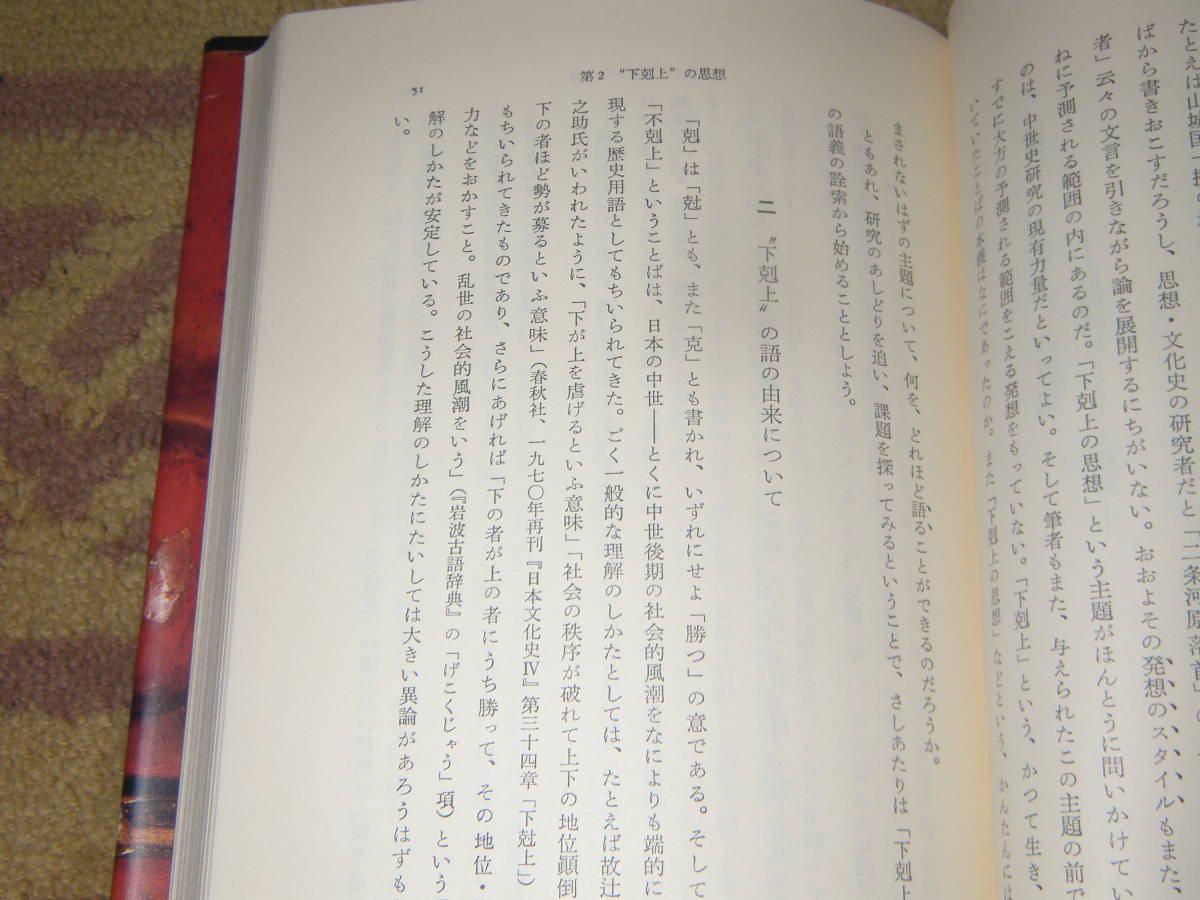 たとえば山城国一揆の
ばから書きおこすだろうし、思想・文化史の研究者だと「二条河原落首」の
者」云々の文言を引きながら論を展開するにちがいない。おおよその発想のスタイルもまた、
ねに予測される範囲の内にあるのだ。「下剋上の思想」という主題がほんとうに問いかけてい
のは、中世史研究の現有力量だといってよい。そして筆者もまた、与えられたこの主題の前で
すでに大方の予測される範囲をこえる発想をもっていない。「下剋上」という、かつて生き、
いていたことばの本義はなにであったのか。また「下剋上の思想」などという、かんたんには
第2 “下剋上”の思想
51
まされないはずの主題について、何を、どれほど語ることができるのだろうか。
ともあれ、研究のあしどりを追い、課題を探ってみるということで、さしあたりは「下剋上
の語義の詮索から始めることとしよう。
二 〝下剋上〟の語の由来について
「剋」は「尅」とも、また「克」とも書かれ、いずれにせよ「勝つ」の意である。そして
「不剋上」ということばは、日本の中世――とくに中世後期の社会的風潮をなによりも端的に
現する歴史用語としてもちいられてきた。ごく一般的な理解のしかたとしては、たとえば故辻
之助氏がいわれたように、「下が上を虐げるといふ意味」「社会の秩序が破れて上下の地位顚倒
下の者ほど勢が募るといふ意味」（春秋社、一九七〇年再刊『日本文化史Ⅳ』第三十四章「下尅上」）
もちいられてきたものであり、さらにあげれば「下の者が上の者にうち勝って、その地位・
力などをおかすこと。乱世の社会的風潮をいう」（『岩波古語辞典』の「げこくじゃう」項）という
解のしかたが安定している。こうした理解のしかたにたいしては大きい異論があろうはずも
い。